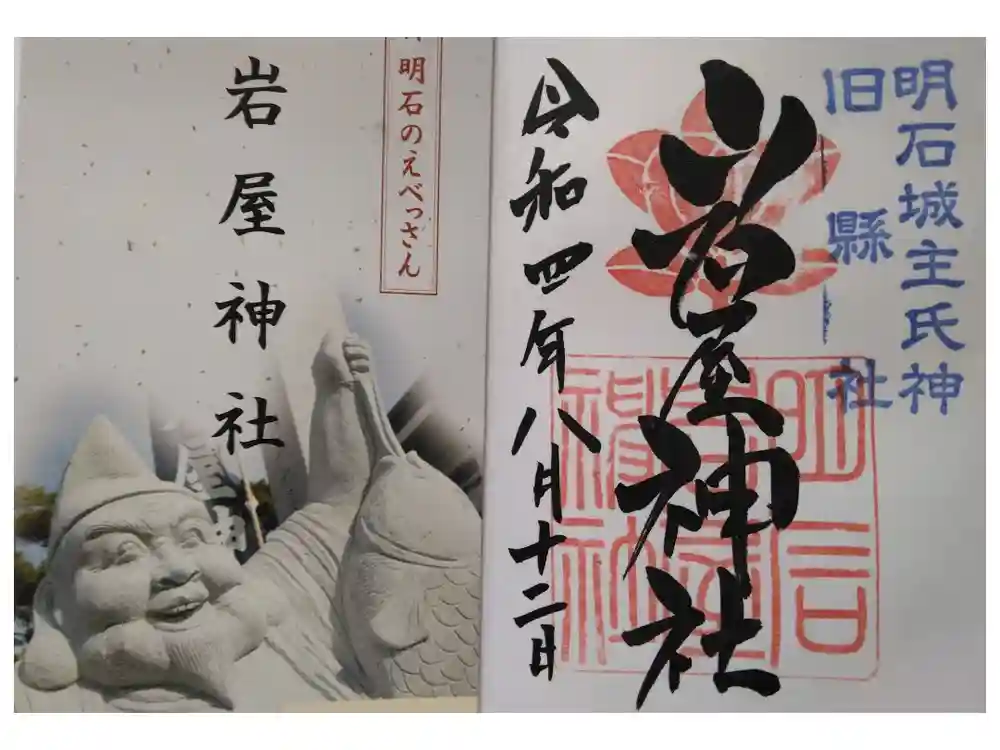 明石城主氏神
旧縣社
岩屋神社
明石
岩屋
神社
令和四年八月十二日
明石のえべっさん
岩屋神社